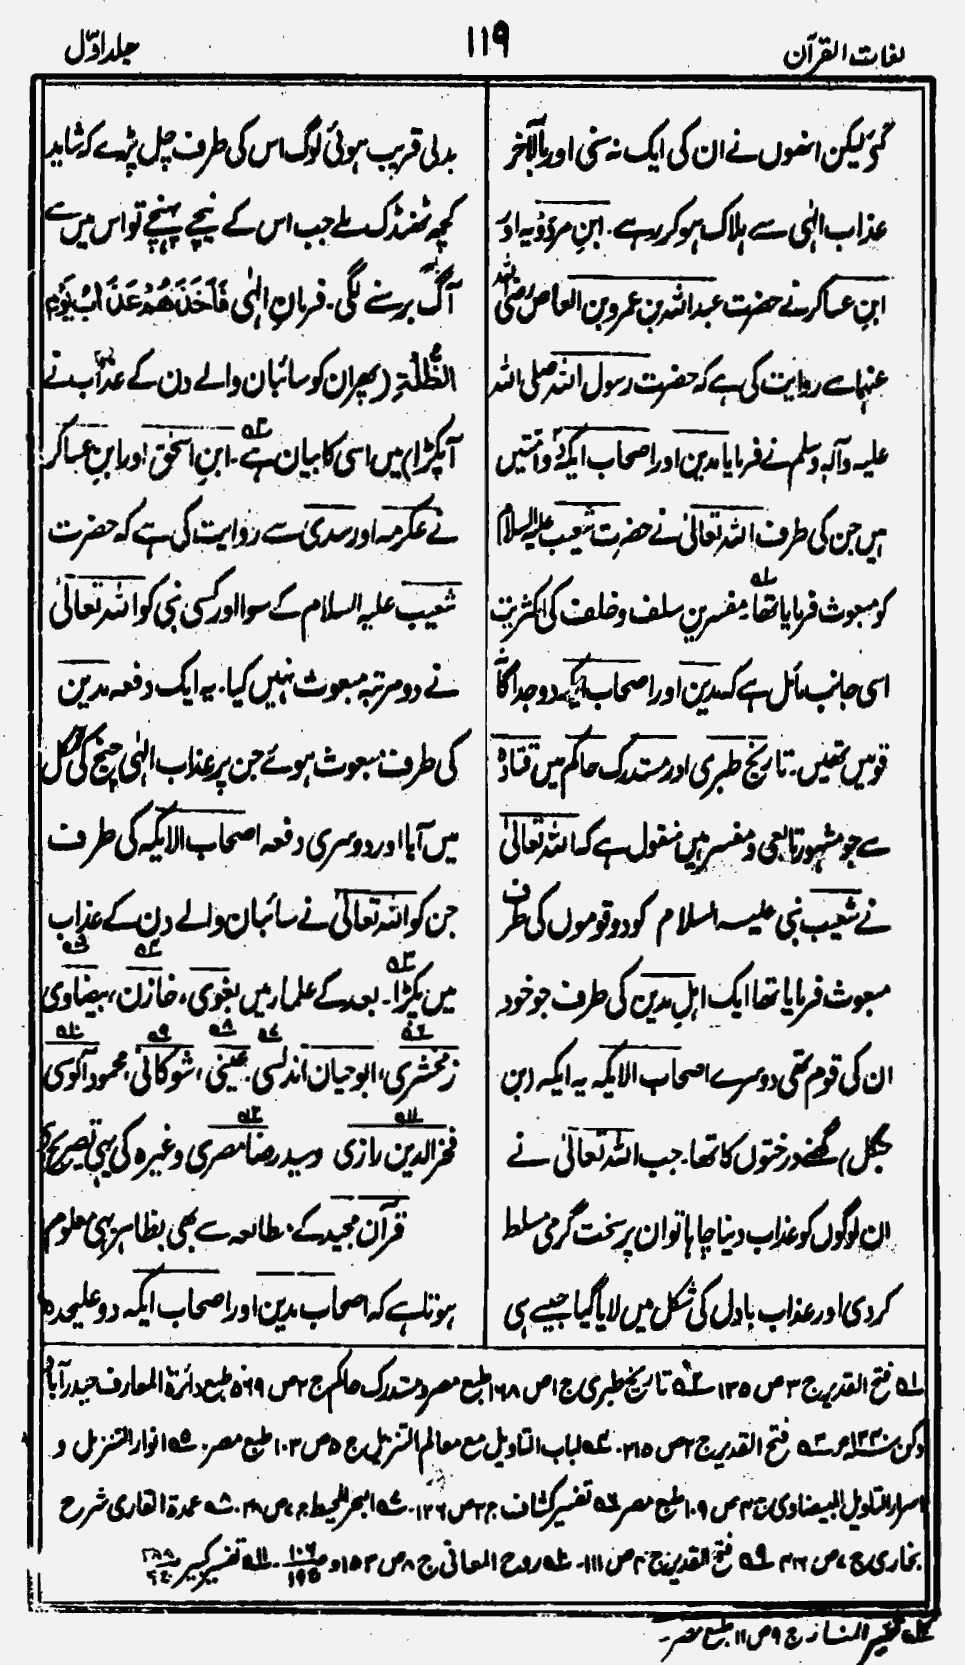 لغات القرآن
۱۱۹
جلد اوّل
گئی لیکن انھوں نے ان کی ایک نہ سنی اور بالآخر
عذاب الٰہی سے ہلاک ہو کر رہے۔ ابنِ مردویہ اور
ابنِ عساکر نے حضرت عبداللہ بن عمرو بن العاص رضی اللہ
عنہما سے روایت کی ہے کہ حضرت رسول اللہ صلی اللہ
علیہ وآلہ وسلم نے فرمایا مدین اور اصحاب ایکہ دو اُمتیں
ہیں جن کی طرف اللہ تعالیٰ نے حضرت شعیب علیہ السلام
کو مبعوث فرمایا تھا۔ ۱؎ مفسرین سلف و خلف کی اکثریت
اسی جانب مائل ہے کہ مدین اور اصحاب ایکہ دو جداگانہ
قومیں تھیں۔ تاریخ طبری اور مستدرک حاکم میں قتادہ
سے جو مشہور تابعی و مفسر ہیں منقول ہے کہ اللہ تعالیٰ
نے شعیب نبی علیہ السلام کو دو قوموں کی طرف
مبعوث فرمایا تھا ایک اہلِ مدین کی طرف جو خود
ان کی قوم تھی دوسرے اصحاب الایکہ یہ ایکہ (بن
جنگل) گھنے درختوں کا تھا۔ جب اللہ تعالیٰ نے
ان لوگوں کو عذاب دینا چاہا تو ان پر سخت گرمی مسلط
کر دی اور عذاب بادل کی شکل میں لایا گیا جیسے ہی
بدلی قریب ہوئی لوگ اس کی طرف چل پڑے کہ شاید
کچھ ٹھنڈک ملے جب اس کے نیچے پہنچے تو اس میں سے
آگ برسنے لگی۔ ۲؎ فرمانِ الٰہی فَاَخَذَهُمْ عَذَابُ يَوْمِ
الظُّلَّةِ (پھر ان کو سائبان والے دن کے عذاب نے
آپکڑا) میں اسی کا بیان ہے۔ ۳؎ ابنِ اسحٰق اور ابنِ عساکر
نے عکرمہ اور سدی سے روایت کی ہے کہ حضرت
شعیب علیہ السلام کے سوا اور کسی نبی کو اللہ تعالیٰ
نے دو مرتبہ مبعوث نہیں کیا۔ یہ ایک دفعہ مدین
کی طرف مبعوث ہوئے جن پر عذاب الٰہی چیخ کی شکل
میں آیا اور دوسری دفعہ اصحاب الایکہ کی طرف
جن کو اللہ تعالیٰ نے سائبان والے دن کے عذاب
میں پکڑا۔ ۳؎ بعد کے علماء میں بغوی، خازن ۴؎، بیضاوی ۵؎
زمخشری ۶؎، ابوحیان اندلسی ۷؎، عینی ۸؎، شوکانی ۹؎، محمود آلوسی ۱۰؎
فخرالدین رازی ۱۱؎ و سید رضا مصری ۱۲؎ وغیرہ کی یہی تصریح ہے
قرآن مجید کے مطالعہ سے بھی بظاہر یہی معلوم
ہوتا ہے کہ اصحاب مدین اور اصحاب ایکہ دو علیحدہ
۱؎ فتح القدیر ج ۳ ص ۱۳۵ ۲؎ تاریخ طبری ج ۱ ص ۱۶۸ طبع مصر و مستدرک حاکم ج ۲ ص ۵۶۹ طبع دائرۃ المعارف حیدرآباد
دکن ۱۳۴۰ھ ۳؎ فتح القدیر ج ۲ ص ۲۱۵۔ ۴؎ لباب التاویل مع معالم التنزیل ج ۵ ص ۱۰۳ طبع مصر۔ ۵؎ انوار التنزیل و
اسرار التاویل للبیضاوی ج ۳ ص ۱۰۹ طبع مصر ۶؎ تفسیر کشاف ج ۳ ص ۱۲۶۔ ۷؎ البحر المحیط ج ۷ ص ۳۸۔ ۸؎ عمدۃ القاری شرح
بخاری ج ۷ ص ۴۱۶ ۹؎ فتح القدیر ج ۴ ص ۱۱۱۔ ۱۰؎ روح المعانی ج ۸ ص ۱۵۳ و ۱۰۶/۱۹۵۔ ۱۱؎ تفسیر کبیر
۱۲؎ تفسیر المنار ج ۹ ص ۱۱ طبع مصر۔